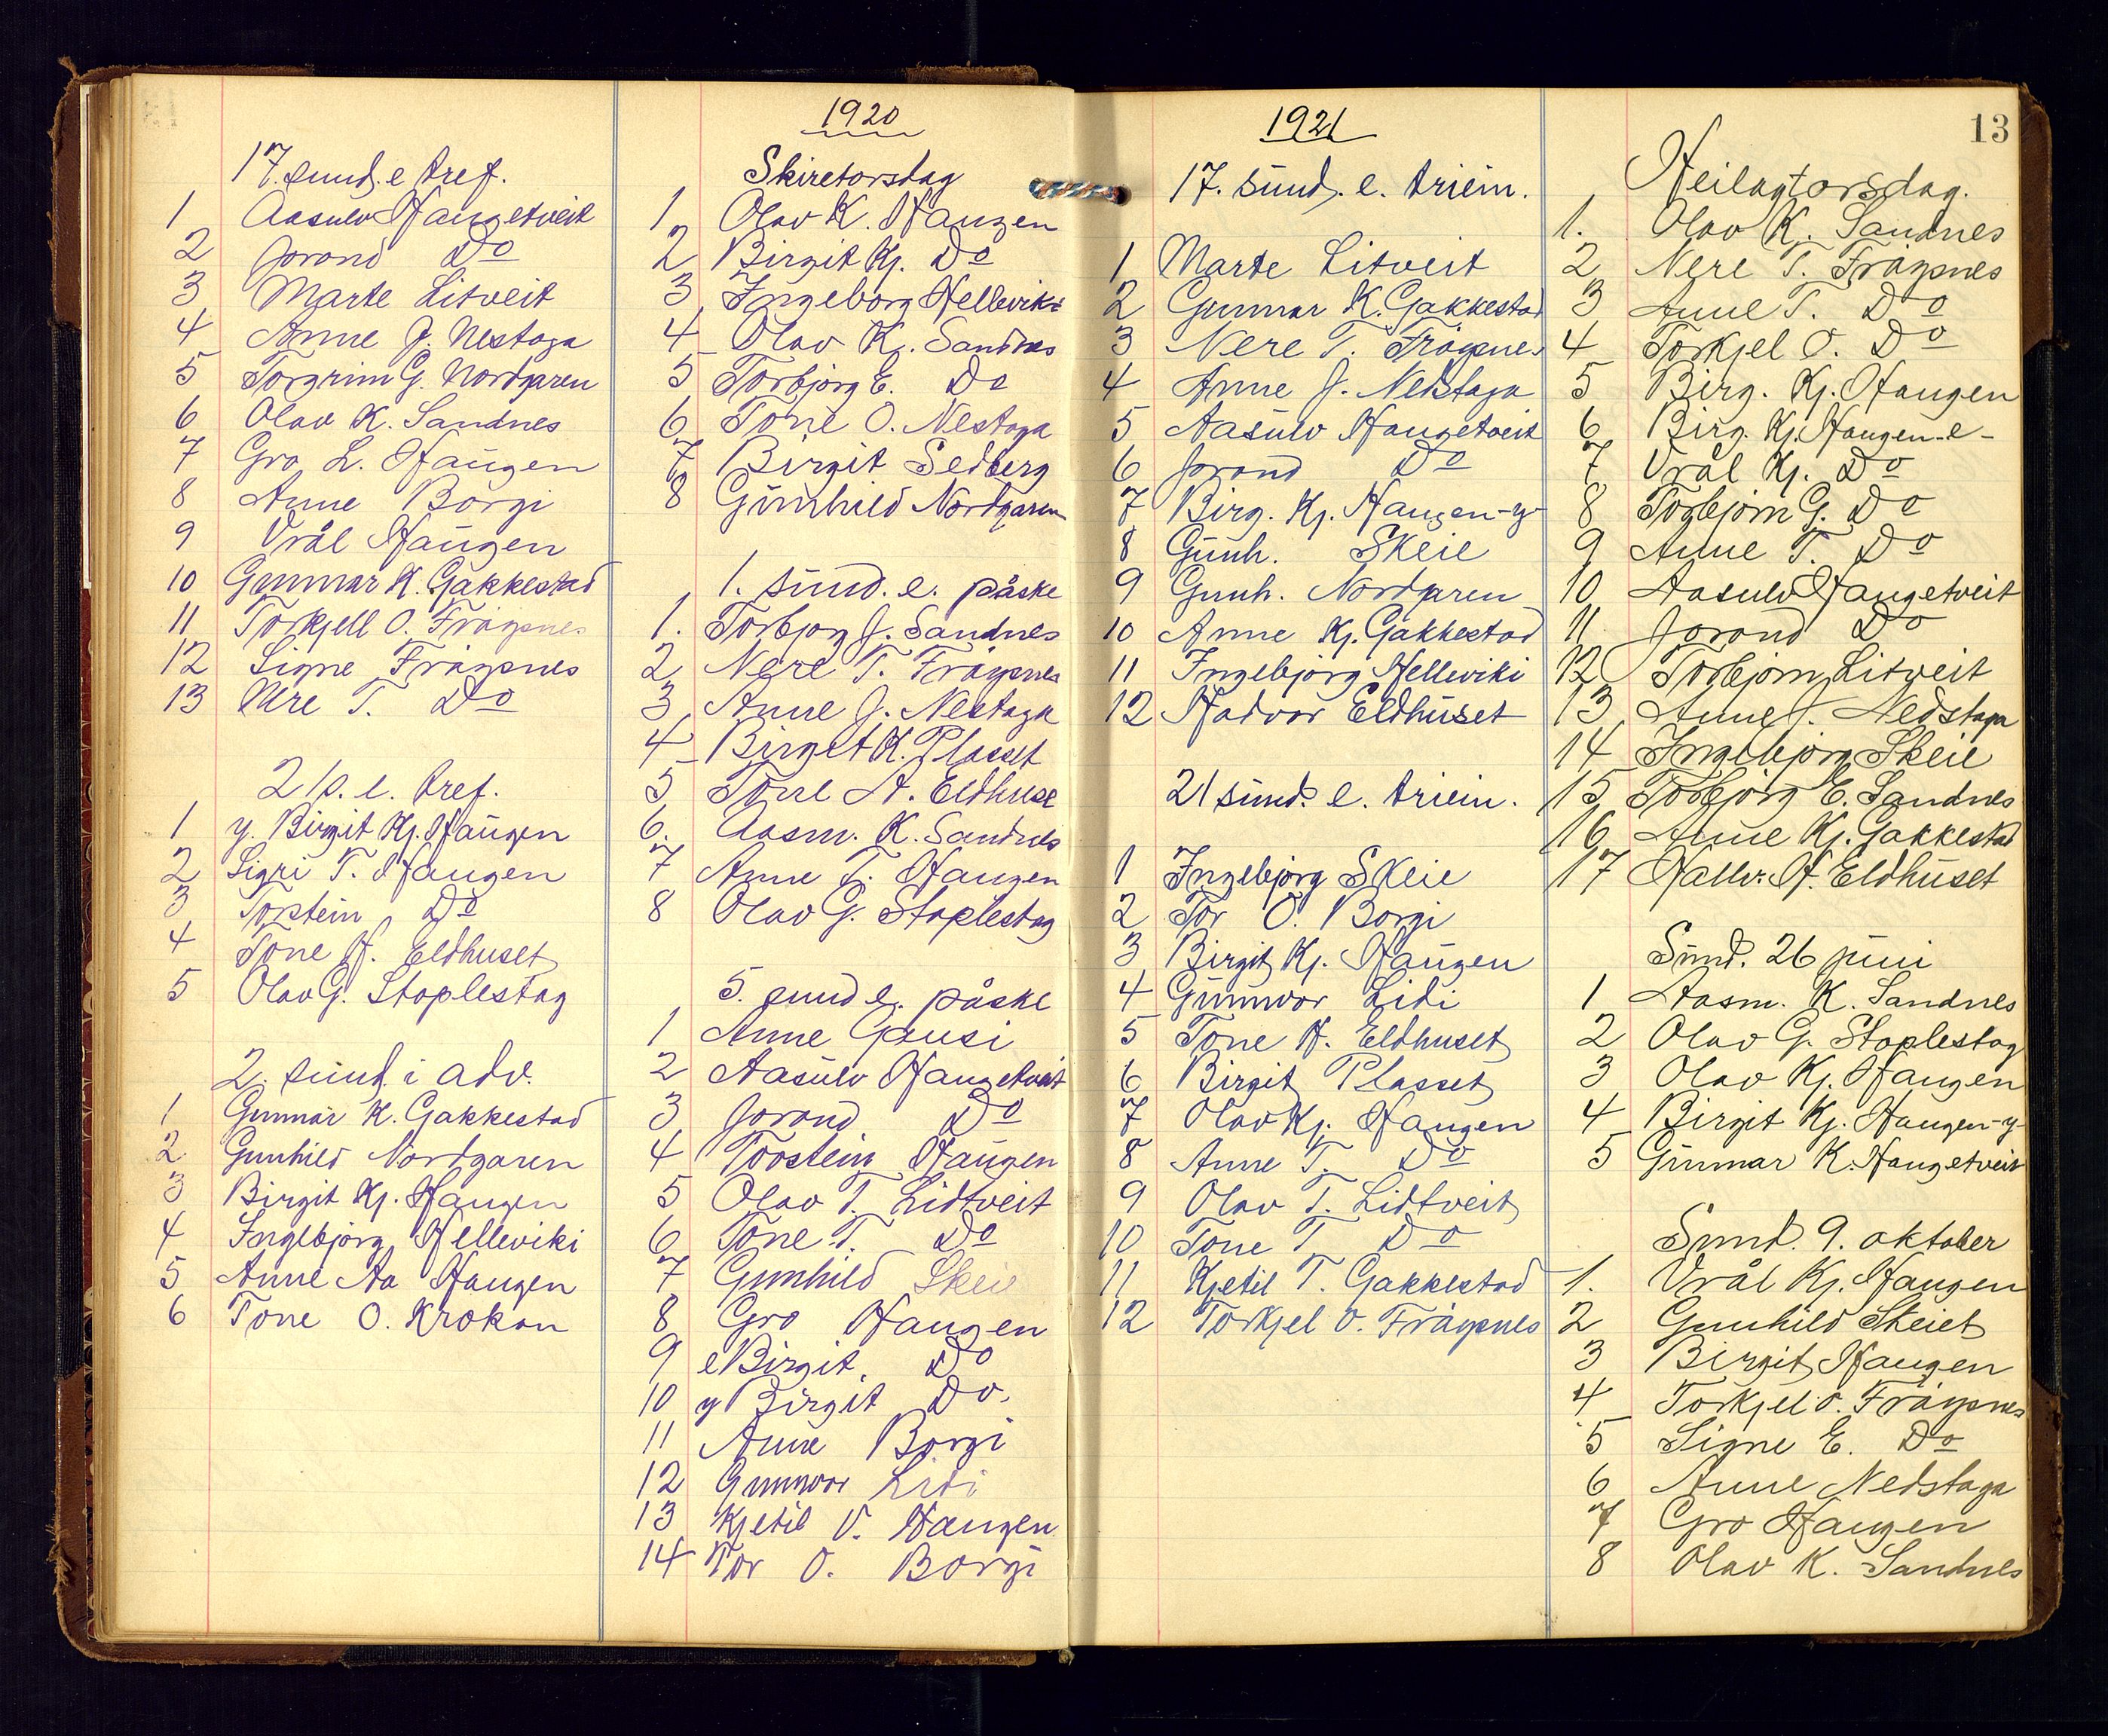 17. sund. e tref.
1 Aasulv Haugetveit
2 Jorond Do
3 Marte Litveit
4 Anne J. Nestaga
5 Torgrim G. Nordgaren
6 Olav K. Sandnes
7 Gro L. Haugen
8 Anne Borgi
9 Vrål Haugen
10 Gunnar K. Gakkestad
11 Torkjell O. Frøysnes
12 Signe Frøysnes
13 Nere T. Do
21 s. e. tref.
1 y. Birgit Kj. Haugen
2 Sigri T. Haugen
3 Torstein Do
4 Tone H. Eldhuset
5 Olav G. Stoplestog
2. sund. i adv.
1 Gunnar K. Gakkestad
2 Gunhild Nordgaren
3 Birgit Kj. Haugen
4 Ingebjørg Helleviki
5 Anne Aa Haugen
6 Tone O. Krokan
1920
Skiretorsdag
1. Olav K. Haugen
2 Birgit Kj. Do
3 Ingeborg Helleviki
4 Olav K. Sandnes
5 Torbjørg E. Do
6 Tone O. Nestaga
7 Birgit Sedberg
8 Gunhild Nordgaren
1. sund. e. påske
1. Torbjørg J. Sandnes
2 Nere T. Frøysnes
3 Anne J. Nestaga
4 Birgit K. Plasset
5 Tone H. Eldhuse
6. Aasm. K. Sandnes
7 Anne T. Haugen
8 Olav G. Stoplestog
5. sund e. påske
1 Anne Gausi
2 Aasulv Haugetveit
3 Jorond Do
4 Torstein Haugen
5 Olav T. Lidtveit
6 Tone T. Do
7 Gunhild Skeie
8 Gro Haugen
9 e Birgit Do
10 y Birgit Do.
11 Anne Borgi
12 Gunnvor Lidi
13 Kjetil V. Haugen
14 Tor O. Borgi
1921
17. sund. e. triein.
1 Marte Litveit
2 Gunnar K. Gakkestad
3 Nere T. Frøysnes
4 Anne J. Nedstaga
5 Aasulv Haugetveit
6 Jorond Do
7 Birg. Kj. Haugen -y-
8 Gunh. Skeie
9 Gunh. Nordgaren
10 Anne Kj. Gakkestad
11 Ingebjørg Helleviki
12 Hadvor Eldhuset
21 sund. e. triein.
1 Ingebjørg Skeie
2 Tor O. Borgi
3 Birgit Kj. Haugen
4 Gunnvor Lidi
5 Tone H. Eldhuset
6 Birgit Plasset
7 Olav Kj. Haugen
8 Anne T. Do
9 Olav T. Lidtveit
10 Tone T Do
11 Kjetil T. Gakkestad
12 Torkjel O. Frøysnes
13
Heilagtorsdag.
1. Olav K. Sandnes
2 Nere T. Frøysnes
3 Anne T. Do
4 Torkjel O. Do
5 Birg. Kj. Haugen
6 Birg. Kj. Haugen -e-
7 Vrål Kj. Do
8 Torbjørn G. Do
9 Anne T. Do
10 Aasulv Haugetveit
11 Jorond Do
12 Torbjørn Litveit
13 Anne J. Nedstaga
14 Ingebjørg Skeie
15 Torbjørg E. Sandnes
16 Anne Kj. Gakkestad
17 Hallv. H. Eldhuset
Sund. 26 juni
1 Aasm. K. Sandnes
2 Olav G. Stoplestog
3 Olav Kj. Haugen
4 Birgit Kj. Haugen -y-
5 Gunnar K. Haugetveit
Sund. 9. oktober
1. Vrål Kj. Haugen
2 Gunhild Skeiet
3 Birgit Haugen
4 Torkjel O. Frøysnes
5 Signe E. Do
6 Anne Nedstaga
7 Gro Haugen
8 Olav K. Sandnes